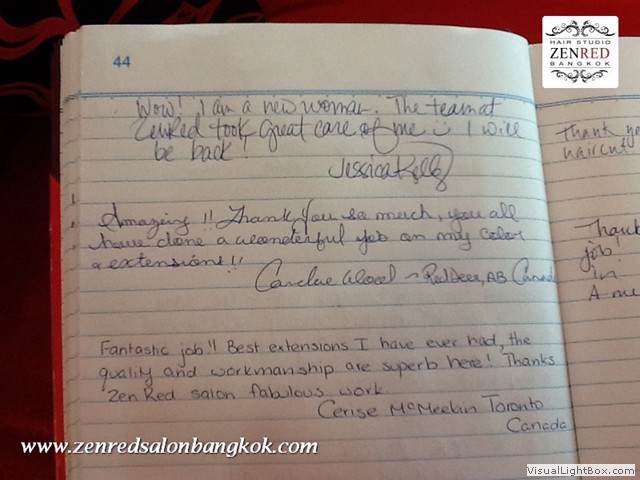 HAIR STUDIO
ZENRED
BANGKOK
44
Wow! I am a new woman. The team at
ZenRed took great care of me I will
be back!
Jessica Kelly
Amazing!! Thank you so much, you all
have done a wonderful job on my color
& extensions!!
~ Red Deer, AB Canada
Fantastic job!! Best extensions I have ever had, the
quality and workmanship are superb here! Thanks
Zen Red salon fabulous work
Cerise McMeekin Toronto
Canada
Thank
haircut
Thank
job
in
A me
www.zenredsalonbangkok.com
VisualLightBox.com